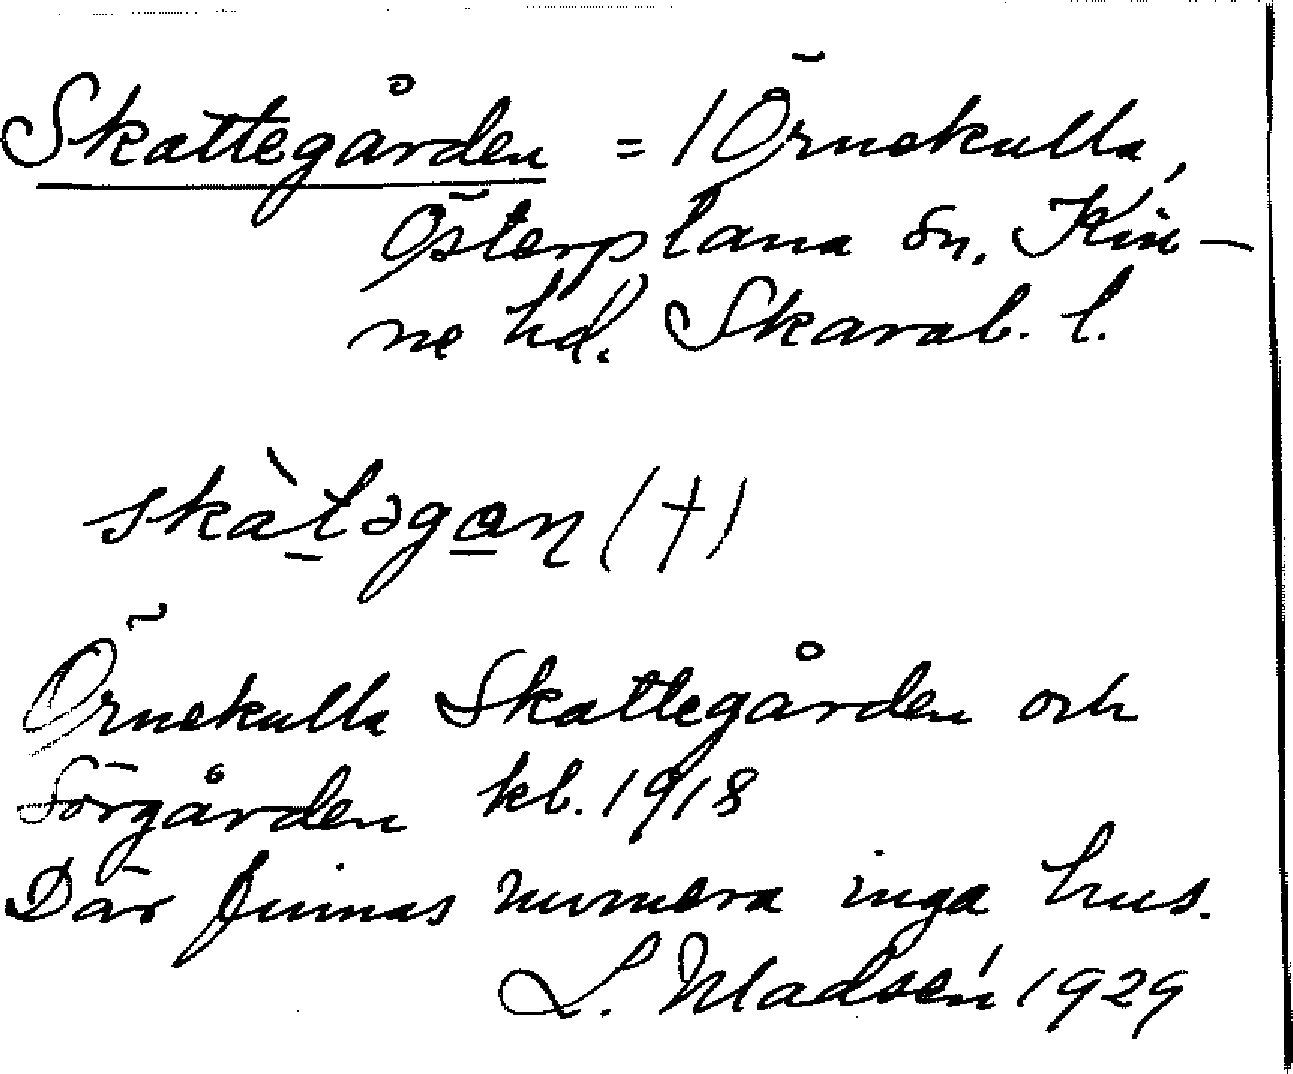 Skattegården = 1 Örnekulla,
Österplana sn. Kin-
ne hd. Skarab. l.
skàt̲əga̲n (†)
Örnekulla Skattegården och
Sörgården kb. 1918
Där finnas numera inga hus.
L. Madsén 1929